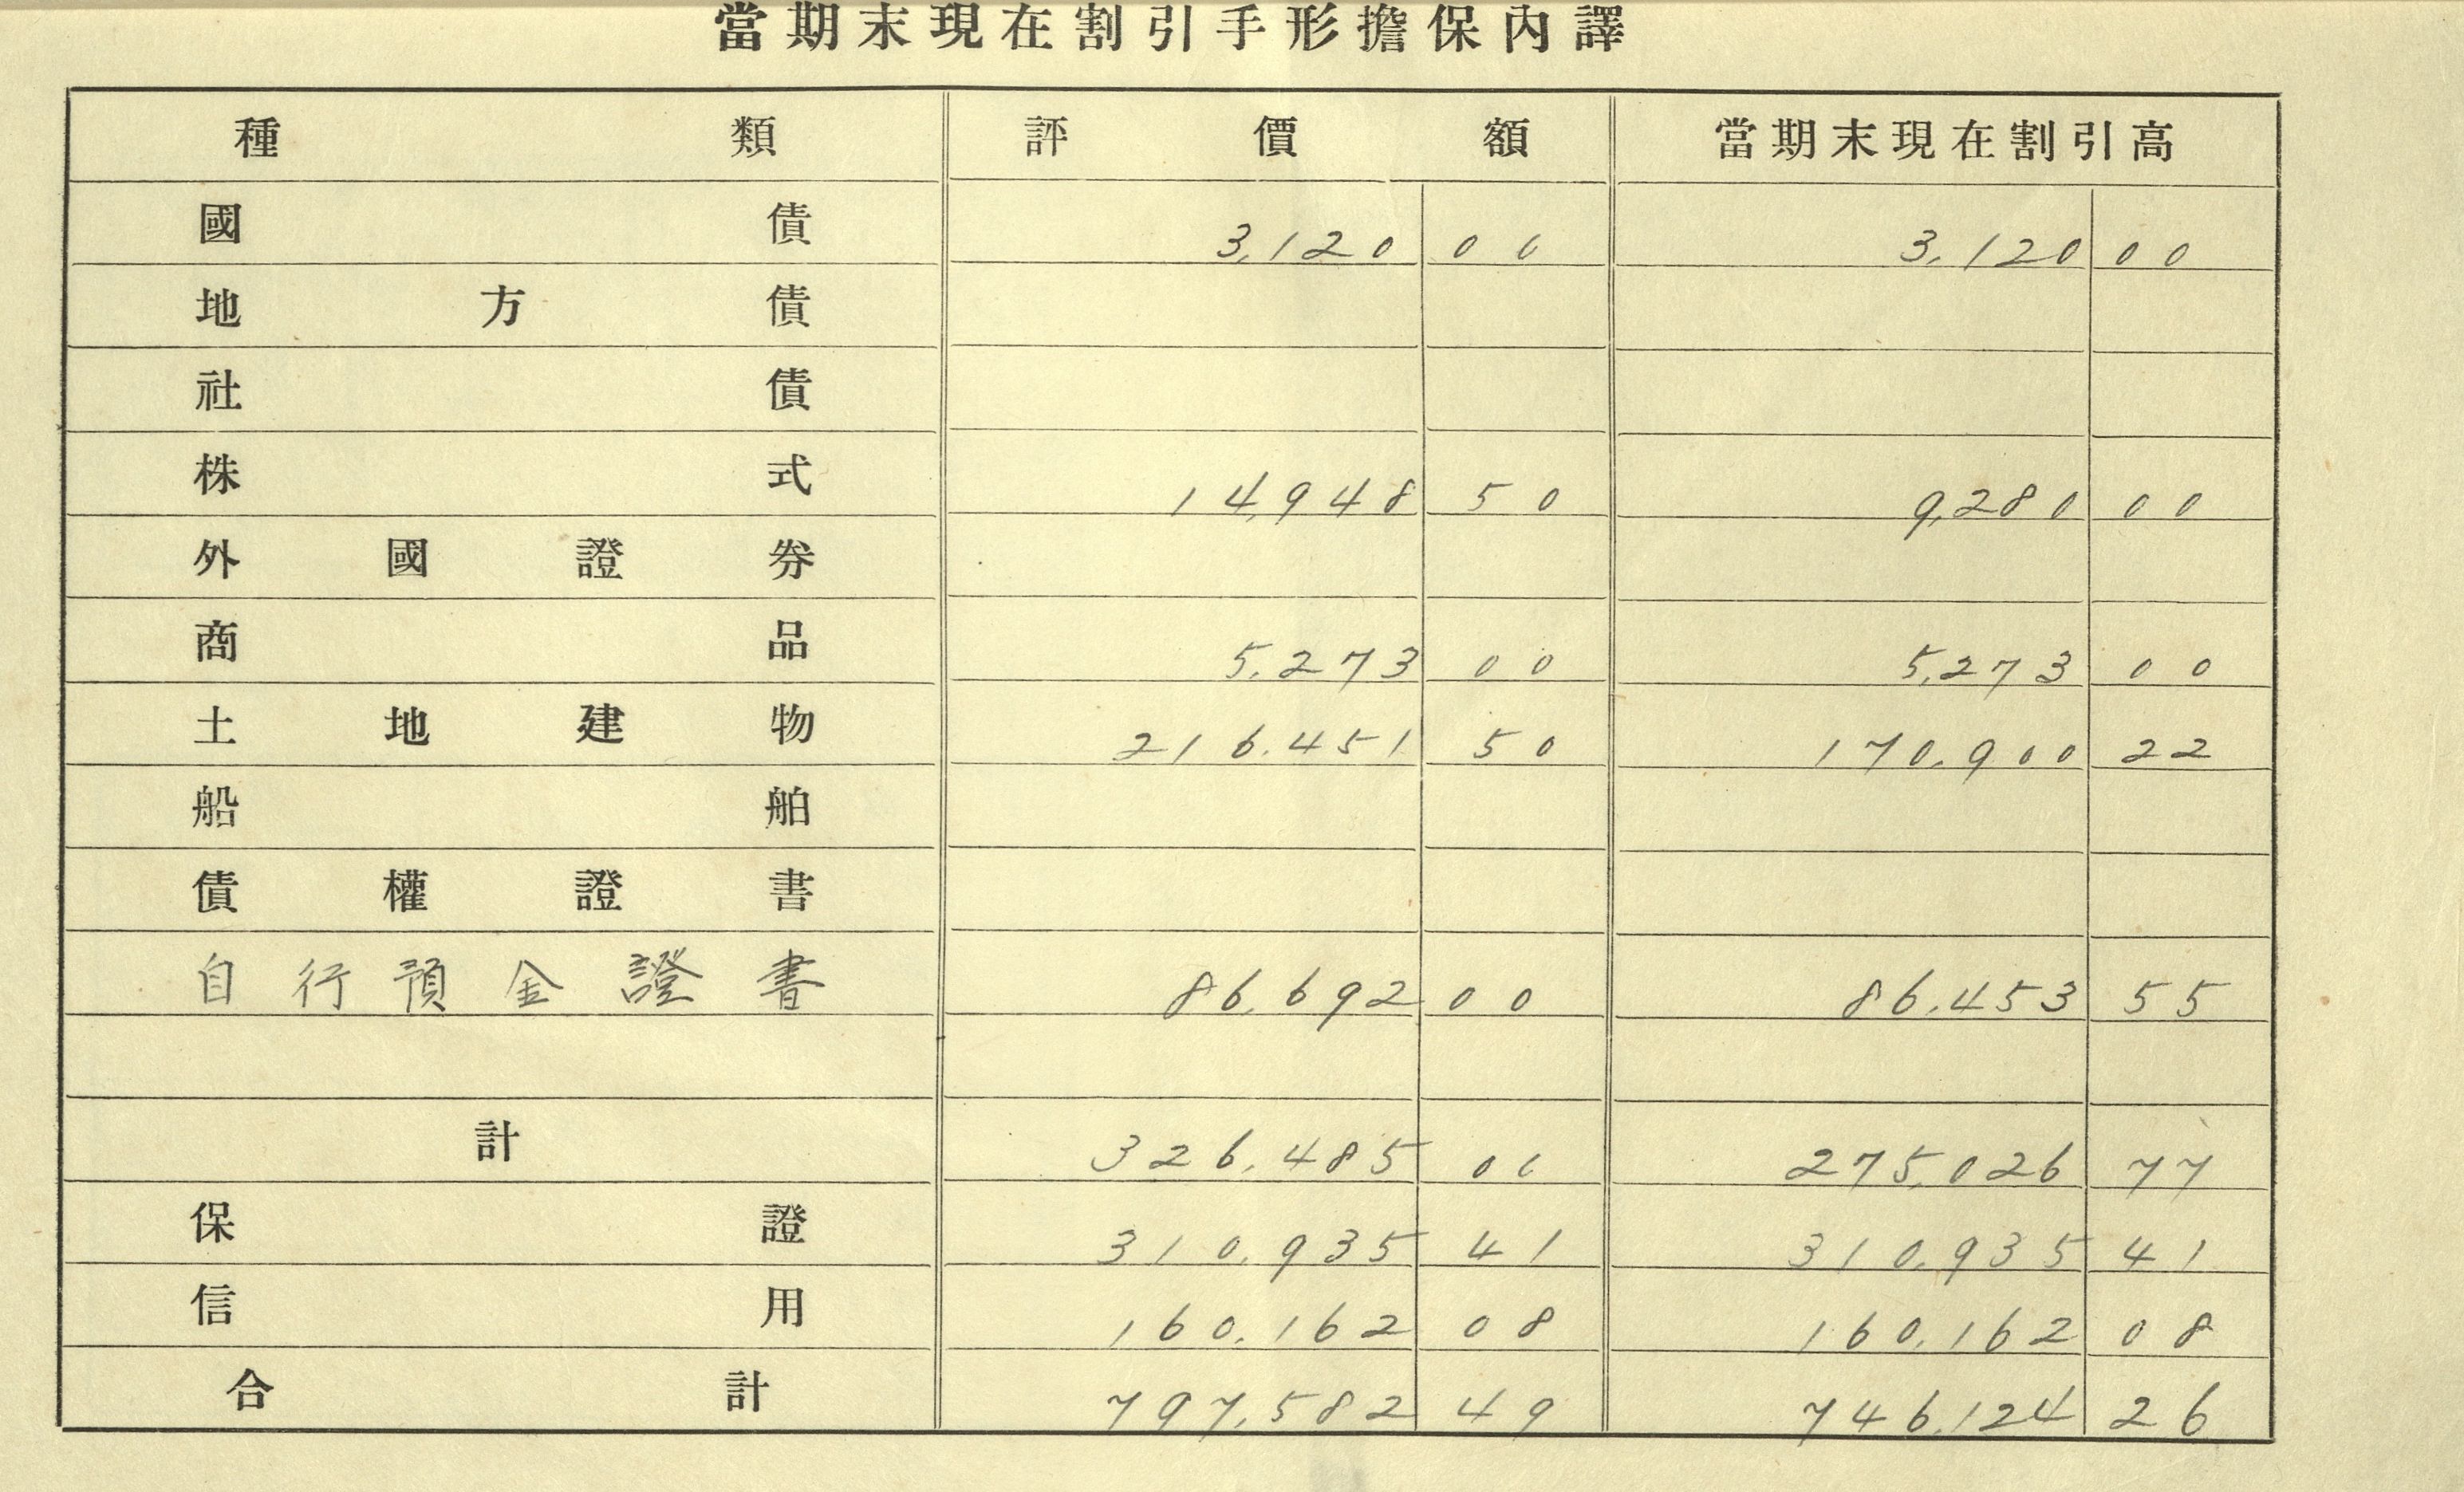 當期末現在割引手形擔保內譯
種類 評價額 當期末現在割引高
國債 3,120 00 3,120 00
地方債
社債
株式 14,948 50 9,280 00
外國證券
商品 5,273 00 5,273 00
土地建物 216.451 50 170.900 22
船舶
債權證書
自行預金證書 86.692 00 86.453 55
計 326,485 00 275,026 77
保證 310,935 41 310,935 41
信用 160,162 08 160,162 08
合計 797,582 49 746,124 26